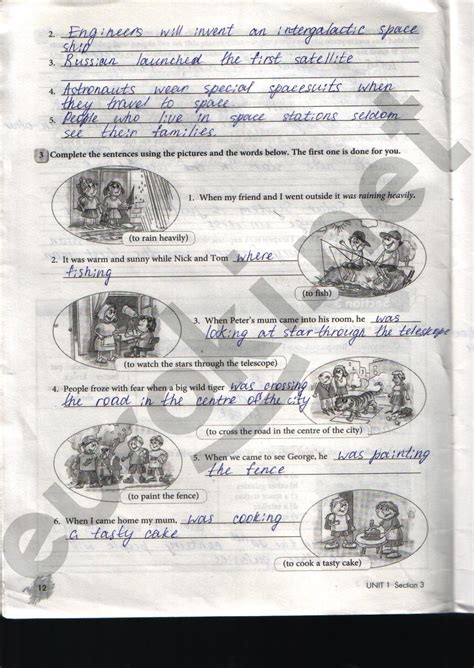 2. Engineers will invent an intergalactic space
ship
3. Russian launched the first satellite
4. Astronauts wear special spacesuits when
they travel to space.
5. People who live in space stations seldom
see their families.
3 Complete the sentences using the pictures and the words below. The first one is done for you.
1. When my friend and I went outside it was raining heavily.
(to rain heavily)
2. It was warm and sunny while Nick and Tom where
fishing
(to fish)
3. When Peter's mum came into his room, he was
looking at star through the telescope
(to watch the stars through the telescope)
4. People froze with fear when a big wild tiger was crossing
the road in the centre of the city
(to cross the road in the centre of the city)
5. When we came to see George, he was painting
the fence
(to paint the fence)
6. When I came home my mum, was cooking
a tasty cake
(to cook a tasty cake)
12
UNIT 1 Section 3